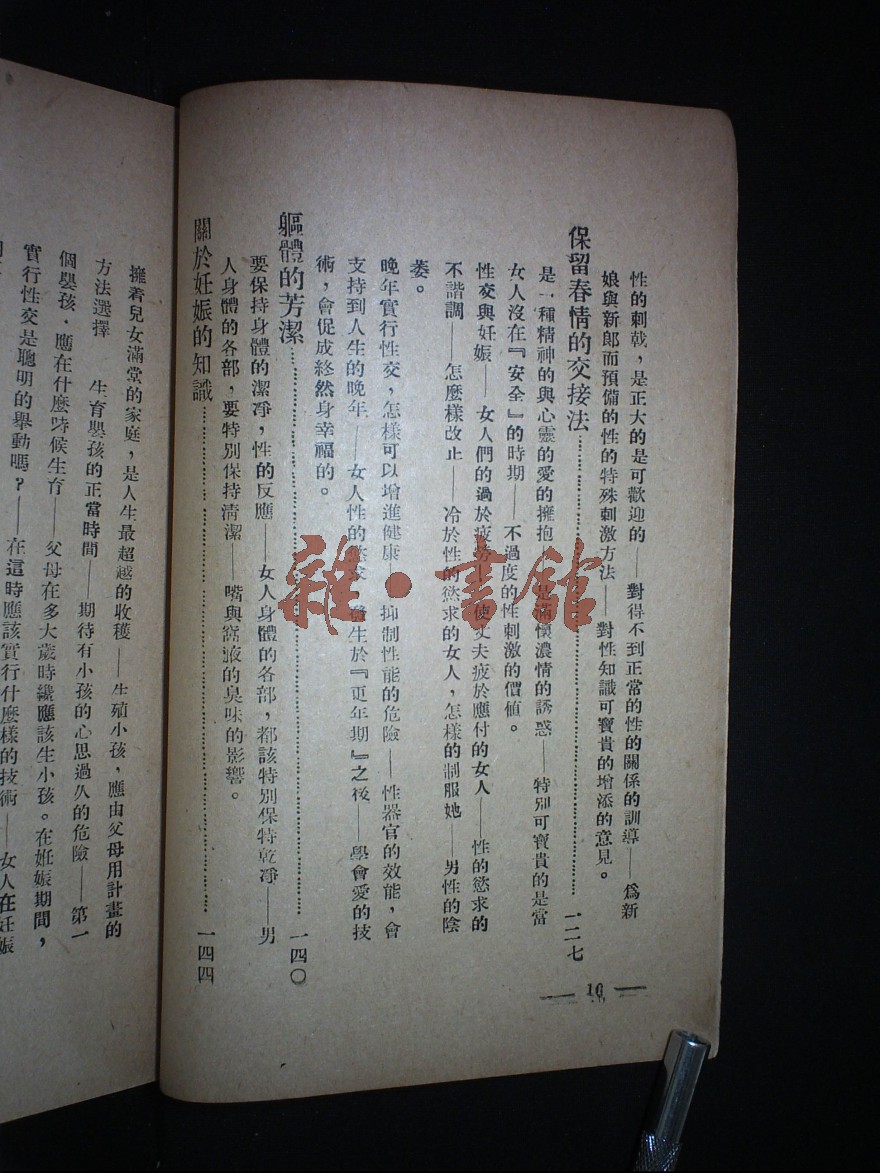 性的刺戟，是正大的是可歡迎的——對得不到正常的性的關係的訓導——爲新
娘與新郎而預備的性的特殊刺激方法——對性知識可寶貴的增添的意見。
保留春情的交接法……………………一二七
是一種精神的與心靈的愛的擁抱 是滿懷濃情的誘惑——特別可寶貴的是當
女人沒在『安全』的時期——不過度的性刺激的價値。
性交與妊娠——女人們的過於疲勞——使丈夫疲於應付的女人——性的慾求的
不諧調——怎麼樣改止——冷於性的慾求的女人，怎樣的制服她——男性的陰
萎。
晚年實行性交，怎樣可以增進健康——抑制性能的危險——性器官的效能，會
支持到人生的晚年——女人性的慾 生於『更年期』之後——學會愛的技
術，會促成終然身幸福的。
軀體的芳潔……………………一四〇
要保持身體的潔凈，性的反應——女人身體的各部，都該特別保特乾凈——男
人身體的各部，要特別保持清潔——嘴與 液的臭味的影響。
關於妊娠的知識……………………一四四
16
擁着兒女滿堂的家庭，是人生最超越的收穫——生殖小孩，應由父母用計畫的
方法選擇 生育嬰孩的正當時間——期待有小孩的心思過久的危險——第一
個嬰孩．應在什麼時候生育——父母在多大歲時纔應該生小孩。在妊娠期間，
實行性交是聰明的舉動嗎？——在這時應該實行什麼樣的技術——女人在妊娠
雜·書館